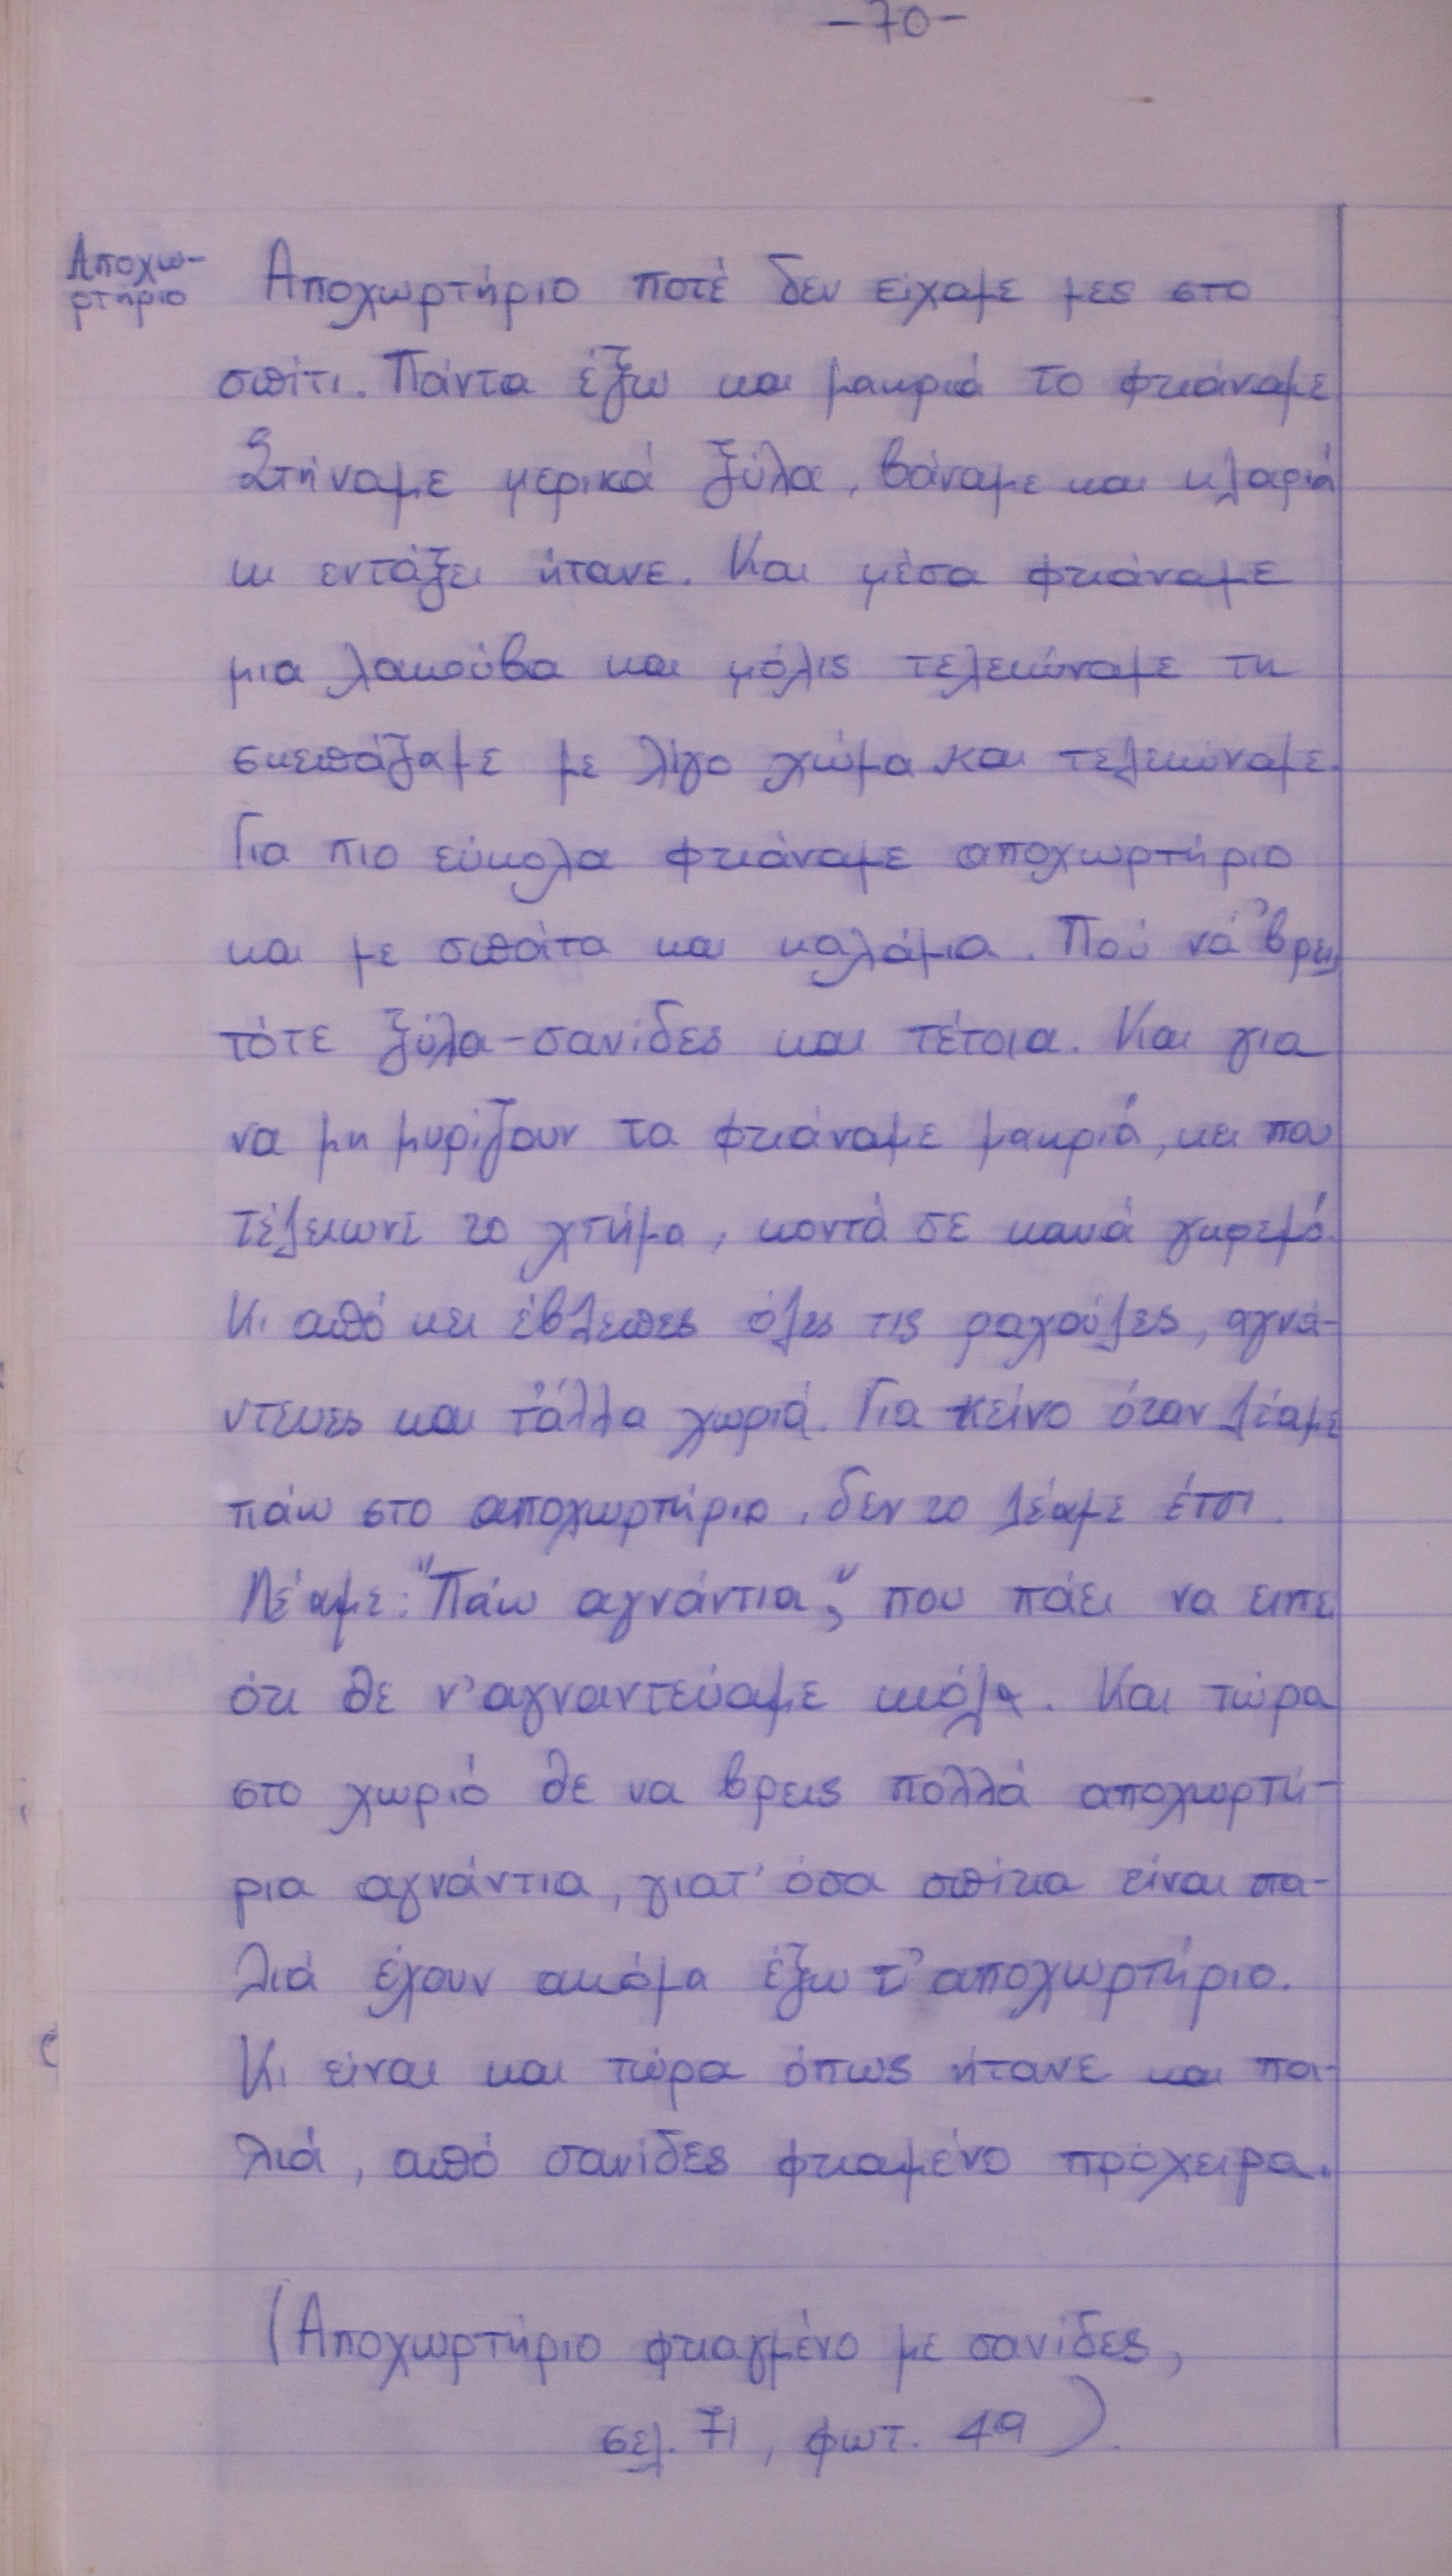 -70-
Αποχω-
ρτήριο
Αποχωρτήριο ποτέ δεν είχαμε μες στο
σπίτι. Πάντα έξω και μακριά το φκιάναμε
Στήναμε μερικά ξύλα, βάναμε και κλαριά
κι εντάξει ήτανε. Και μέσα φκιάναμε
μια λακούβα και μόλις τελεκώναμε τη
σκεπάζαμε με λίγο χώμα και τελεκώναμε.
Για πιο εύκολα φκιάναμε αποχωρτήριο
και με σπάτα και καλάμια. Πού νά 'βρεις
τότε ξύλα-σανίδες και τέτοια. Και για
να μη μυρίζουν τα φκιάναμε μακριά, κει που
τέλεκωνε το χτήμα, κοντά σε κανά γκρεμό.
Κι από κει έβλεπες όλες τις ραχούλες, αγνά-
ντευες και τ'άλλα χωριά. Για κείνο όταν λέαμε
πάω στο αποχωρτήριο, δεν το λέαμε έτσι.
Λέαμε: "Πάω αγνάντια", που πάει να ειπε
ότι θε ν'αγναντεύαμε κιόλα. Και τώρα
στο χωριό θε να βρεις πολλά αποχωρτή-
ρια αγνάντια, γιατ' όσα σπίτια είναι πα-
λιά έχουν ακόμα έξω τ'αποχωρτήριο.
Κι είναι και τώρα όπως ήτανε και πα-
λιά, από σανίδες φκιαμένο πρόχειρα.
(Αποχωρτήριο φκιαγμένο με σανίδες,
σελ. 71, φωτ. 49).